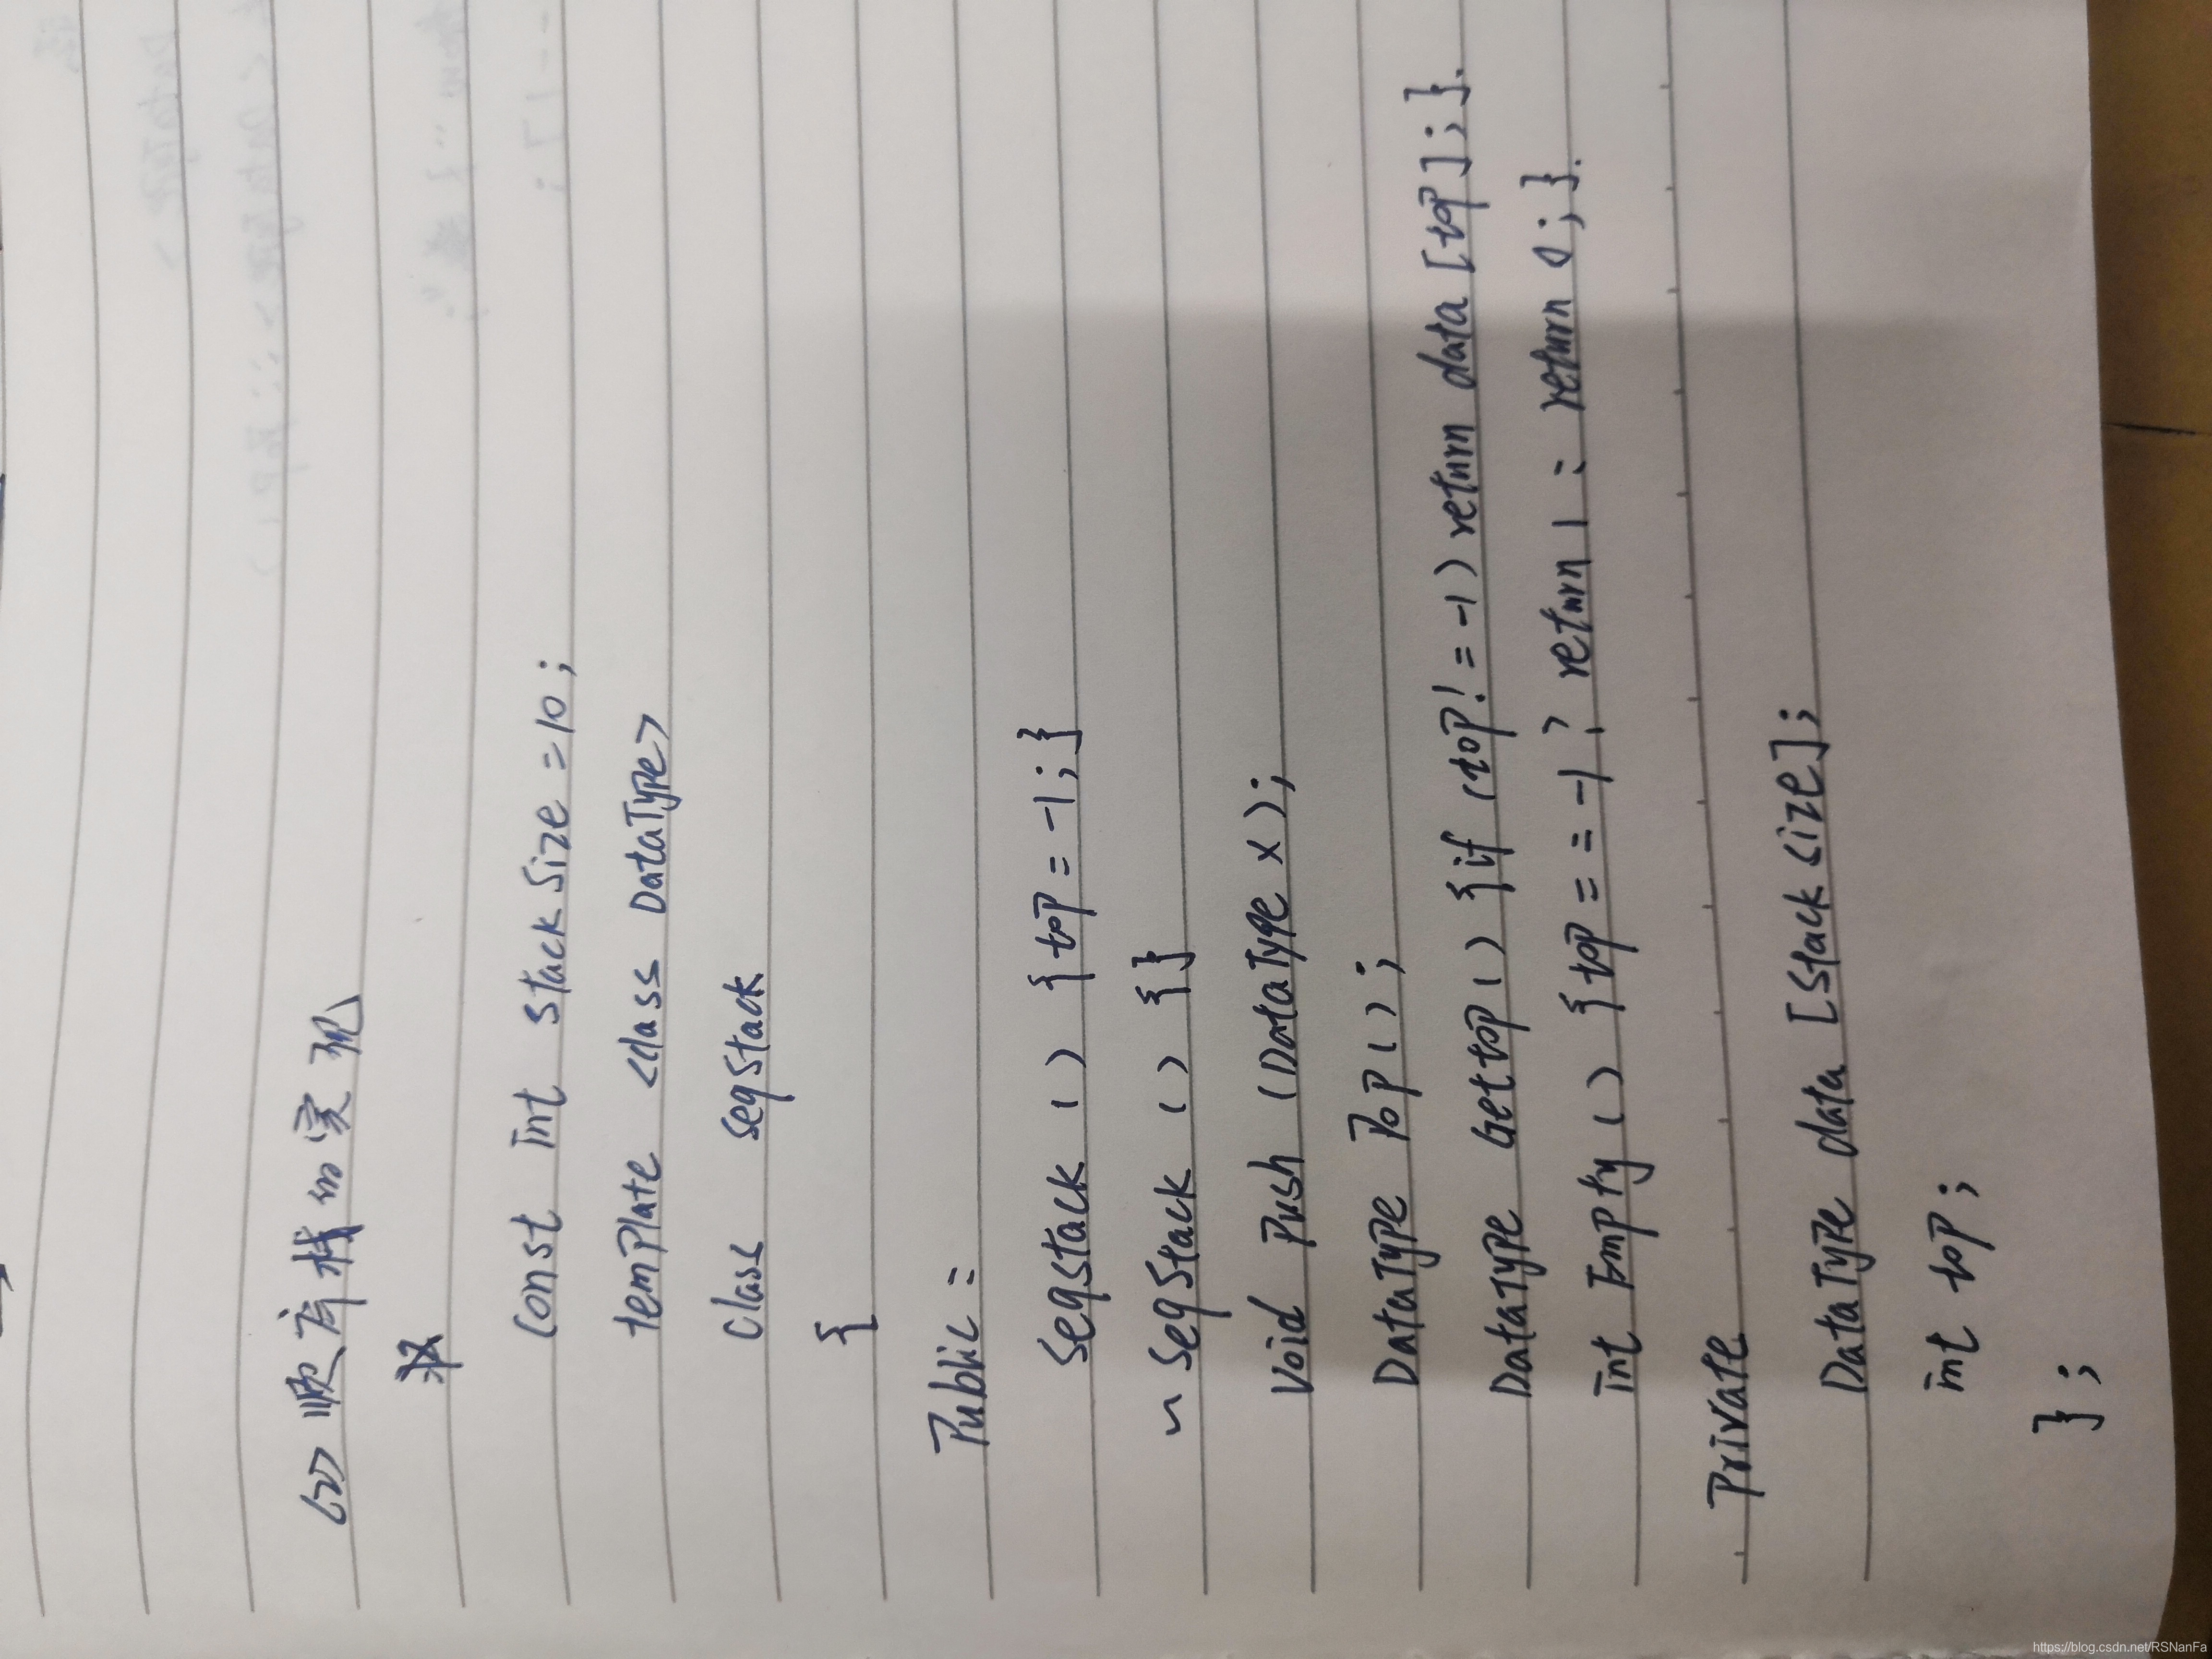 (2) 顺序栈的实现
const int StackSize = 10;
template <class DataType>
class SeqStack
{
Public:
SeqStack () {top = -1;}
~SeqStack () {}
void Push (DataType x);
DataType Pop();
DataType Gettop() {if (top! = -1) return data [top];}.
int Empty () {top == -1? return 1 : return 0;}.
Private
DataType data [StackSize];
int top;
};
https://blog.csdn.net/RSNanFa